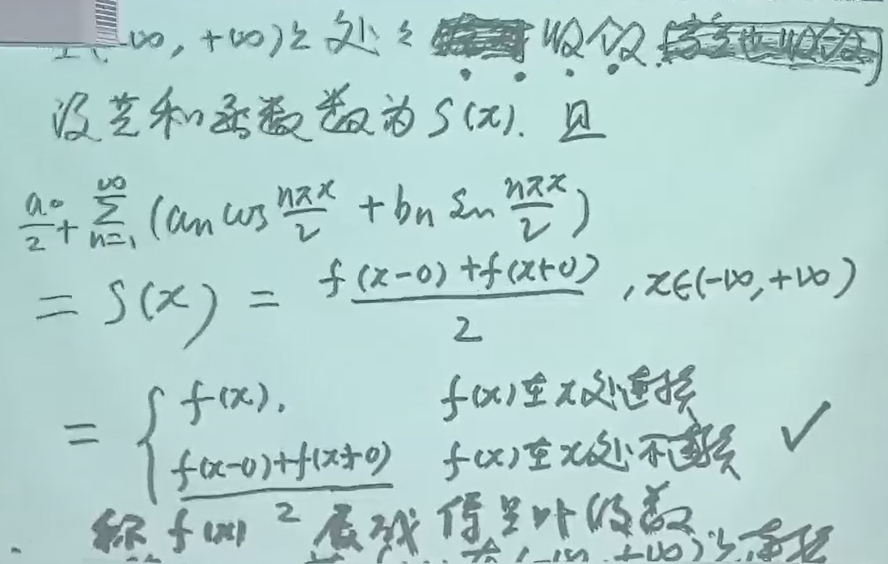 (-∞, +∞)上处处 收敛
设其和函数数为 S(x). 且
a0/2 + ∑_{n=1}^{∞} (an cos nπx/l + bn sin nπx/l)
= S(x) = (f(x-0)+f(x+0))/2 , x∈(-∞,+∞)
= { f(x), f(x)在x处连续
(f(x-0)+f(x+0))/2 f(x)在x处不连续 ✓
称 f(x) 展成 傅里叶级数